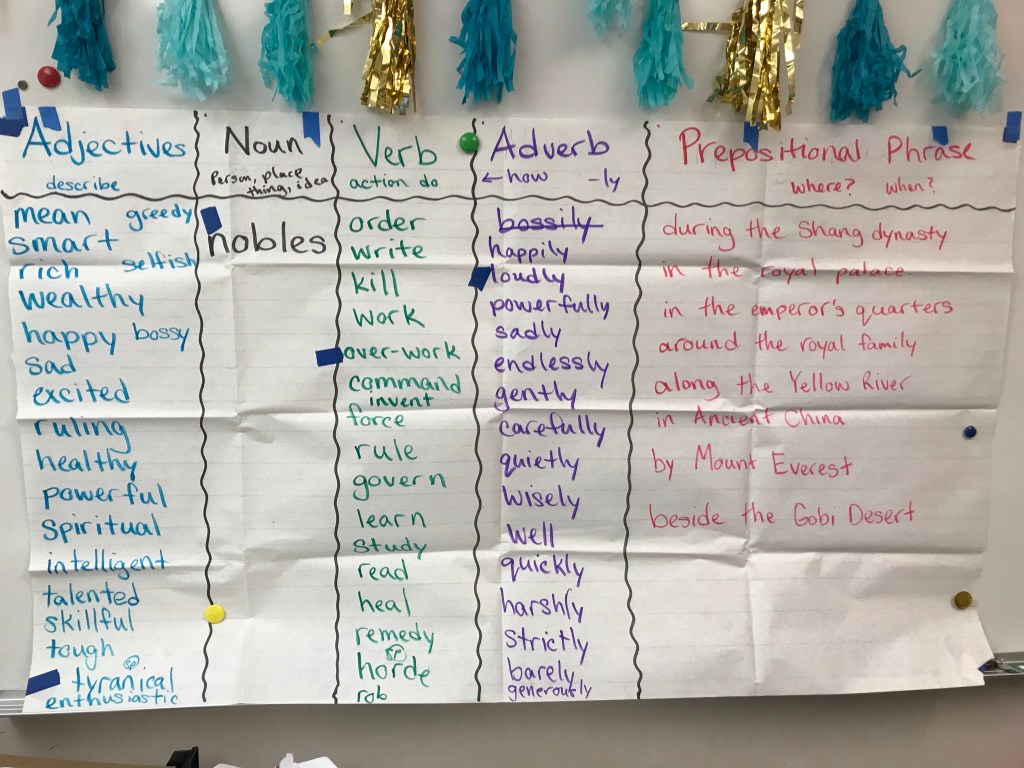 Adjectives
describe
mean greedy
smart
rich selfish
wealthy
happy bossy
sad
excited
ruling
healthy
powerful
spiritual
intelligent
talented
skillful
tough
tyranical
enthusiastic
Noun
Person, place
thing, idea
nobles
Verb
action do
order
write
kill
work
over-work
command
invent
force
rule
govern
learn
study
read
heal
remedy
horde
rob
Adverb
← how -ly
bossily
happily
loudly
powerfully
sadly
endlessly
gently
carefully
quietly
wisely
well
quickly
harshly
strictly
barely
generously
Prepositional Phrase
where? when?
during the Shang dynasty
in the royal palace
in the emperor's quarters
around the royal family
along the Yellow River
in Ancient China
by Mount Everest
beside the Gobi Desert